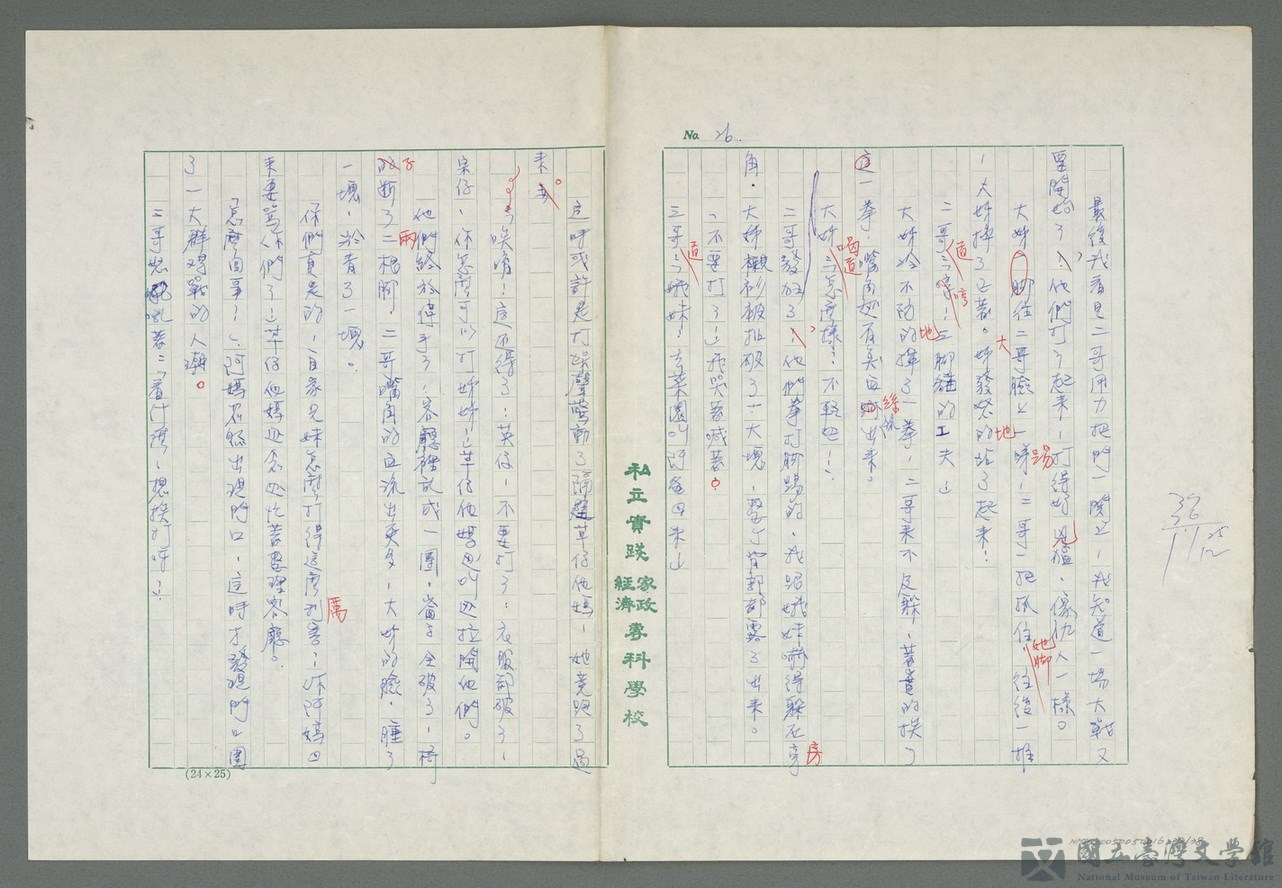 No. 26.
最後我看見二哥用力把門一關上，我知道一場大戰又
要開始了，他們打了起來，打得好兇猛，像仇人一樣。
大姊腳往二哥臉上一踢，二哥一把抓住她腳，往後一推
，大姊摔了之著。大姊發怒的地站了起來！
二哥道：「哼！三腳貓的工夫」
大姊冷不防的地揮了一拳，二哥來不及躲，著實的挨了
這一拳，嘴角還有美血絲流出來。
大姊喝道：「怎麼樣？不輕吧！」
二哥發火了，他們拳打腳踢的，我跟娥妹嚇得躲在房
角。大姊襯衫被扯破了一大塊，整個背部都露了出來。
「不要打了！」我哭著喊著。
三哥道：「娥妹！去菜園叫阿爸回來」
私立實踐家政經濟專科學校
這時或許是打鬧聲驚動了隔壁草仔他媽，她竟跑了過
來。
「唉唷！這還得了！英仔，不要打了！衣服都破了，
宗仔，你怎麼可以打姊姊！」草仔他媽邊叫邊拉開他們。
他們終於停手了，客廳裡亂成一團，窗子全破了，椅
子斷了兩根腳，二哥嘴角的血流出更多，大姊的臉，腫了
一塊，瘀青了一塊。
「你們真是的，自家兄妹怎麼打得這麼利害厲，你阿媽回
來要罵你們了」草仔他媽邊念邊忙著整理客廳。
「怎麼回事！」阿媽忽然出現門口，這時才發現門口圍
了一大群觀戰的人潮。
二哥怒吼著：「看什麼，想挨打呀！」
(24×25)
國立臺灣文學館
National Museum of Taiwan Literature